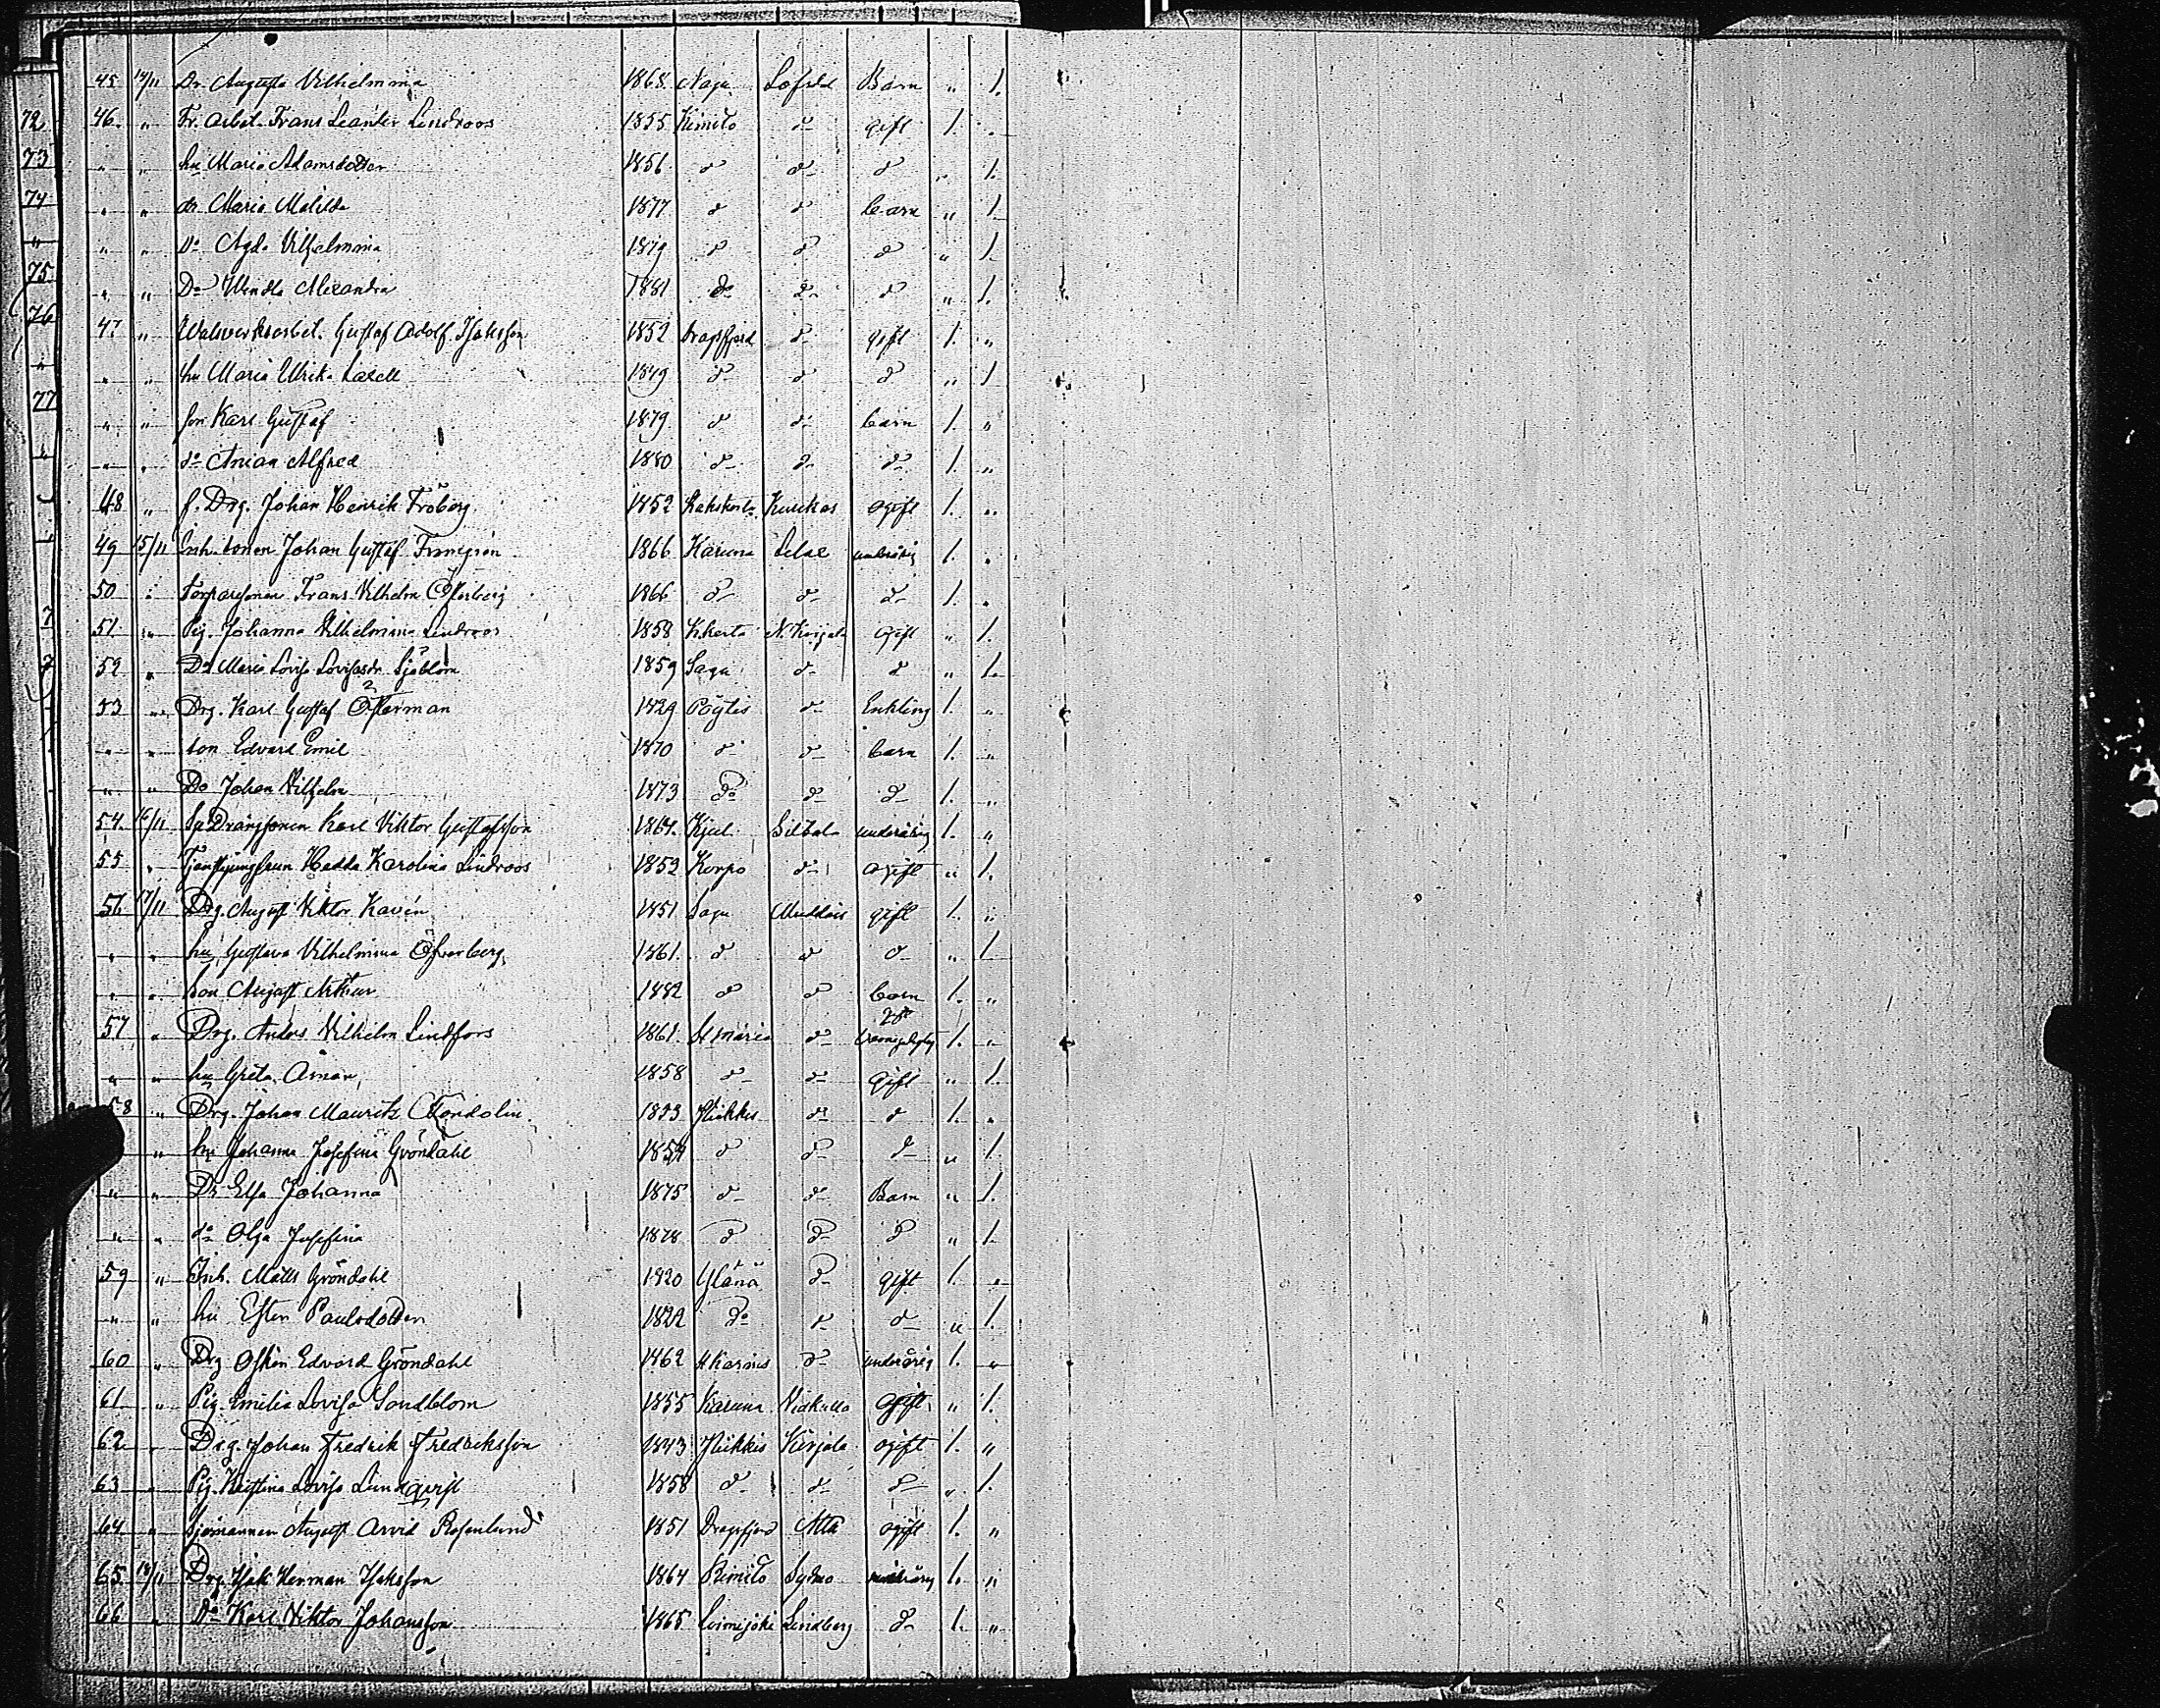 45 14/11 Dr. Augusta Vilhelmina 1868 Nagu Lofsdal Barn " 1.
72 46. " Fr. arbet. Frans Leander Lindroos 1855 Kimito do gift 1. "
73 " " hu Maria Adamsdotter 1856 do do do " 1.
74 " " dr Maria Matilda 1877 do do barn " 1
" " " Do Agda Vilhelmina 1879 do do do " 1
75 " " Do Wendla Alexandra 1881 do do do " 1.
76 47 " Walsverksarbet. Gustaf Adolf Isaksson 1852 Dragsfjerd do gift 1. "
" " " hu Maria Ulrika 1849 do do do " 1
77 " " son Karl Gustaf 1879 do do barn 1. "
" " " do Alfred 1880 do do do 1. "
48 " f. Drg. Johan Henrik Fröberg 1852 Kuukas ogift 1. "
49 15/11 Inh. sonen Johan Gustaf 1866 Karuna underårig 1. "
50 " Torparesonen Frans Vilhelm Österberg 1866 do do do 1. "
51 " Pig. Johanna Vilhelmina Lindroos 1858 N. Kirjala ogift " 1.
52 " Do Maria Lovisa Lovisasdr Sjöblom 1859 Sagu do do " 1.
53 " Drg. Karl Gustaf Österman 1829 Pöytis do Enkling 1. "
" " son Edvard Emil 1870 do do barn 1. "
" " Do Johan Vilhelm 1873 do do do 1. "
54. 16/11 Drängsonen Karl Viktor Gustafsson 1864. Kjul underårig 1. "
55 " Tjenstjungfrun Hedda Karolina Lindroos 1852 Korpo do ogift " 1.
56 17/11 Drg. August Viktor Kavén 1851 Sagu Muddais gift 1. "
" " hu Gustava Vilhelmina Öfverberg 1861. do do do " 1
" " son August Arthur 1882 do do barn 1. "
57 " Drg. Anders Vilhelm Lindfors 1861. St Marie do 1. "
" " hu Greta Åman 1858 do do gift " 1.
58 " Drg. Johan Mauritz 1853 Hiikkis do do 1. "
" hu Johanna Josefina Gröndahl 1854 do do do " 1.
" " Dr Elsa Johanna 1875 do do Barn " 1.
" " do Olga Josefina 1878 do do do " 1.
59 " Inh. Matts Gröndahl 1820 Yläne do gift 1. "
" " hu Ester Paulsdotter 1822 do do do " 1.
60 " Drg Oskar Edvard Gröndahl 1862 St Karins do underårig 1. "
61 " Pig. Emilia Lovisa Sandblom 1855 Karuna ogift " 1.
62 " Drg. Johan Fredrik Fredriksson 1843 Hiikkis Kirjala ogift 1. "
63 " Pig. Kristina Lovisa Lundqvist 1858 do do do " 1.
64 " Sjömannen August Arvid Rosenlund 1851 Dragsfjerd Attu ogift 1. "
65 18/11 Drg. Isak Herman Isaksson 1864 Kimito Sydmo underårig 1. "
66 " Do Karl Viktor Johansson 1865 Loimijoki Lindberg do 1. "